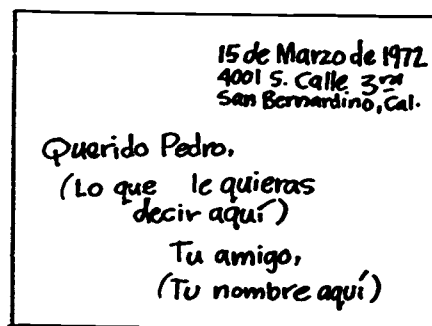 15 de Marzo de 1972
4001 S. Calle 3ra
San Bernardino, Cal.
Querido Pedro,
(Lo que le quieras
decir aquí)
Tu amigo,
(Tu nombre aquí)